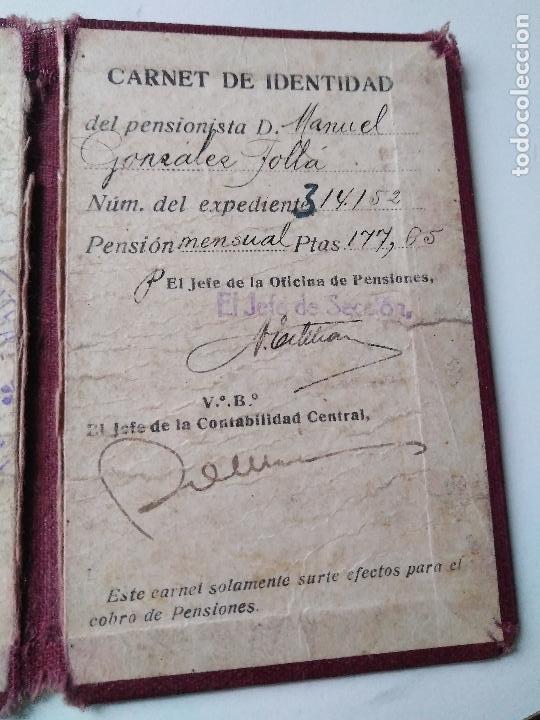 CARNET DE IDENTIDAD
del pensionista D. Manuel
González Follá
Núm. del expediente 314.152
Pensión mensual Ptas 177,65
P El Jefe de la Oficina de Pensiones,
El Jefe de Sección,
V.º B.º
El Jefe de la Contabilidad Central,
Este carnet solamente surte efectos para el
cobro de Pensiones.
todocoleccion